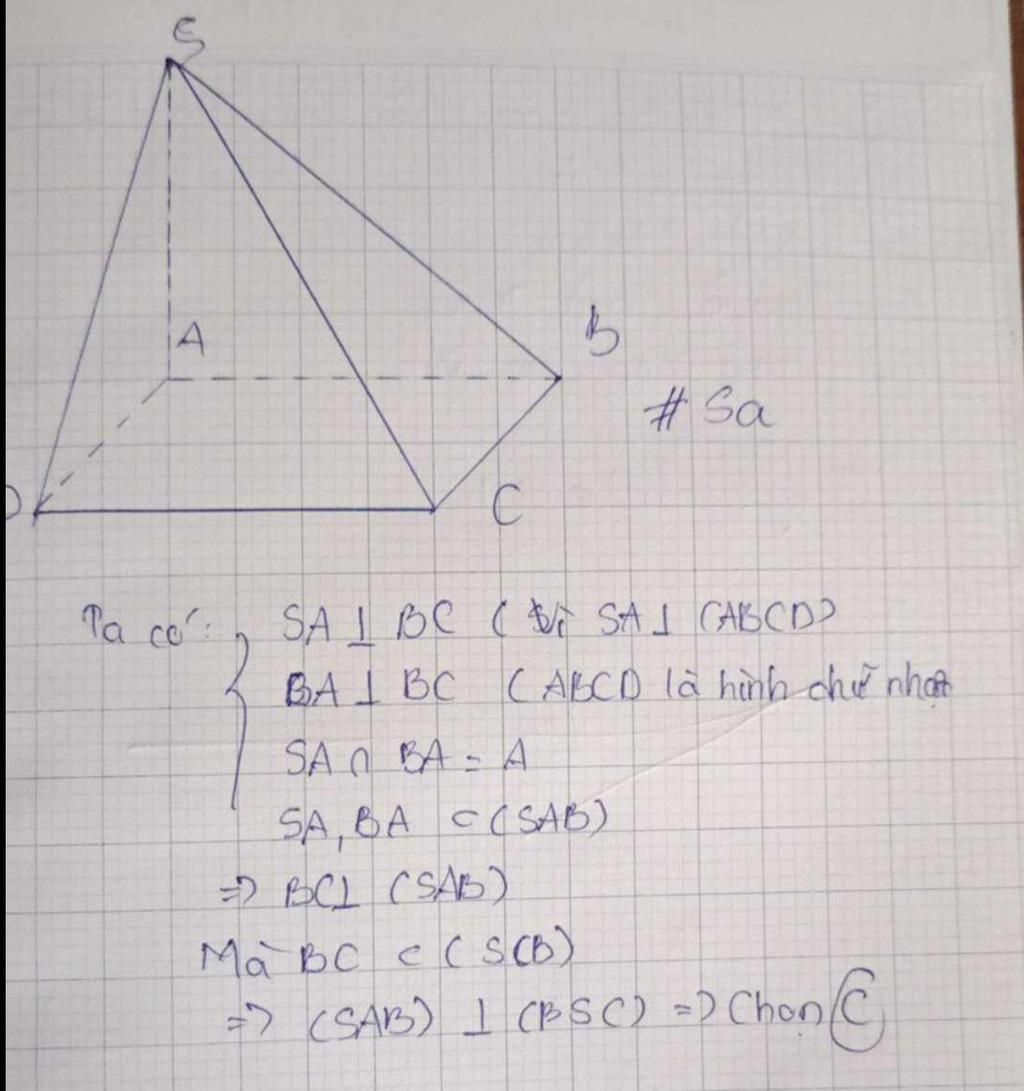 S
A
B
# Sa
D
C
Ta có: SA ⊥ BC ( Vì SA ⊥ (ABCD)
BA ⊥ BC ( ABCD là hình chữ nhật
SA ∩ BA = A
SA, BA ⊂ (SAB)
=> BC ⊥ (SAB)
Mà BC ⊂ (SCB)
=> (SAB) ⊥ (BSC) => Chọn C